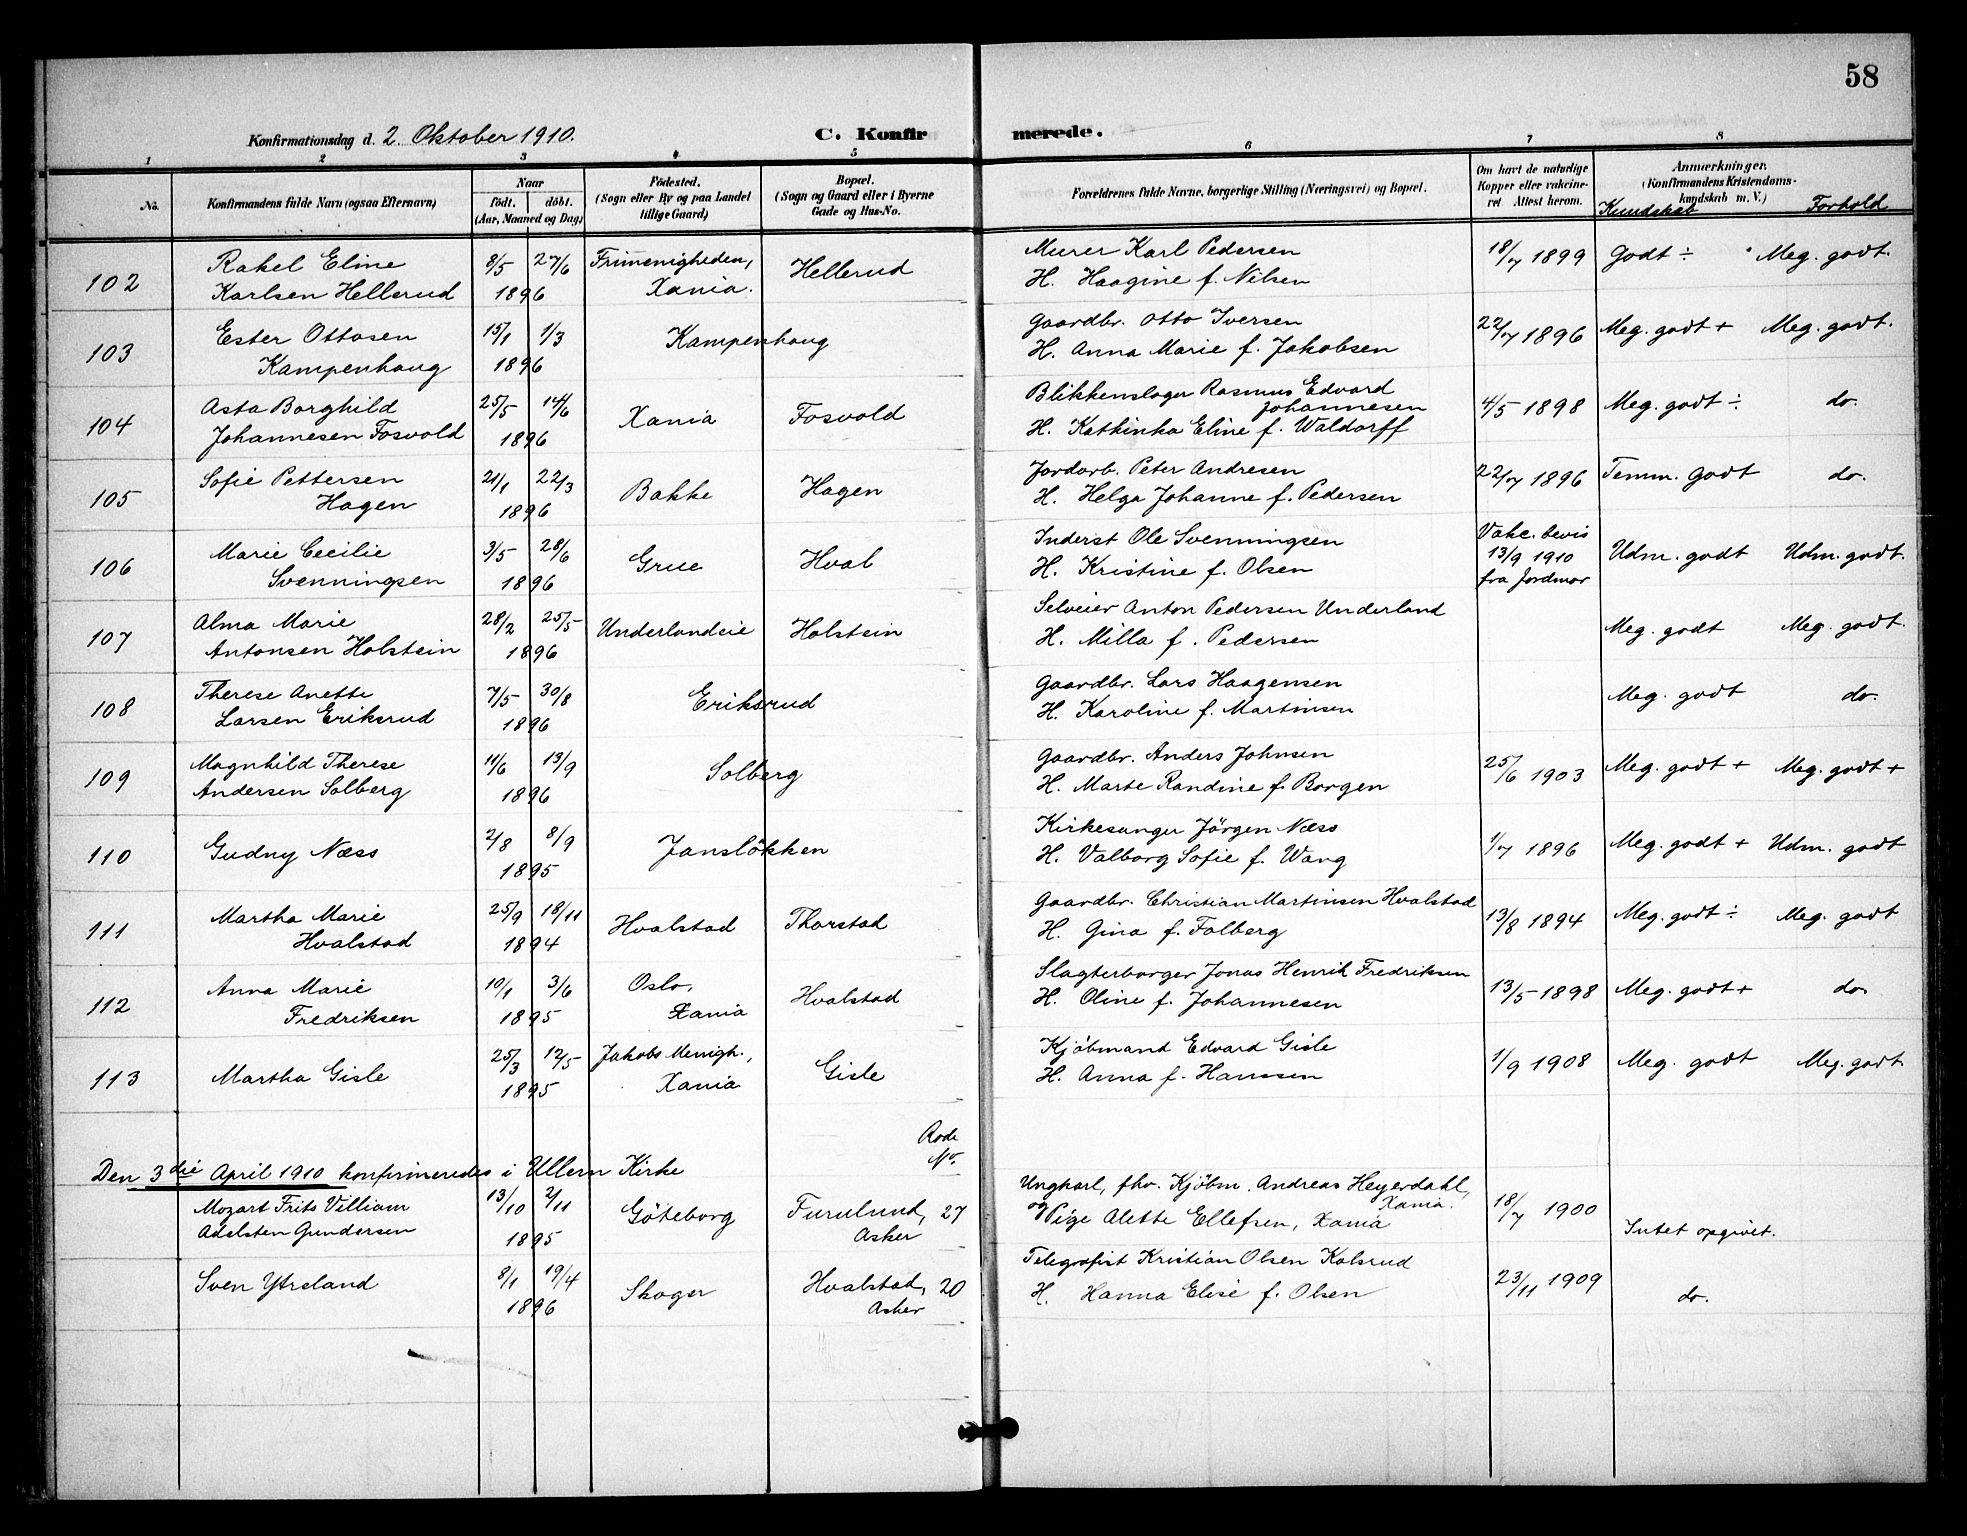 58
Konfirmationsdag d. 2. Oktober 1910.
C. Konfirmerede.
1 2 3 4 5 6 7 8
No.
Konfirmandens fulde Navn (ogsaa Efternavn)
Naar
födt. döbt.
(Aar, Maaned og Dag)
Födested.
(Sogn eller By og paa Landet
tillige Gaard)
Bopæl.
(Sogn og Gaard eller i Byerne
Gade og Hus-No.
Forældrenes fulde Navne, borgerlige Stilling (Næringsvei) og Bopæl.
Om havt de naturlige
Kopper eller vakcine-
ret Attest herom.
Anmærkninger.
(Konfirmandens Kristendoms-
kundskab m. V.)
Kundskab Forhold
102 Rakel Eline 8/5 27/6 Frimenigheden, Hellerud Murer Karl Pedersen 18/7 1899 Godt ÷ Meg. godt.
Karlsen Hellerud 1896 Xania. H. Haagine f. Nilsen
103 Ester Ottosen 15/1 1/3 Kampenhaug Gaardbr. Otto Iversen 22/7 1896 Meg. godt + Meg. godt.
Kampenhaug 1896 H. Anna Marie f. Jakobsen
104 Asta Borghild 25/5 14/6 Xania Fosvold Blikkenslager Rasmus Edvard
Johannesen 4/5 1898 Meg. godt ÷ do.
Johannesen Fosvold 1896 H. Kathinka Eline f. Waldorff
105 Sofie Pettersen 21/1 22/3 Bakke Hagen Jordarb. Peter Andresen 22/7 1896 Temm. godt do.
Hagen 1896 H. Helga Johanne f. Pedersen
106 Marie Cecilie 3/5 28/6 Grue Hval Inderst Ole Svenningsen Vakc. bevis
13/9 1910 Udm. godt Udm. godt.
Svenningsen 1896 H. Kristine f. Olsen fra Jordmor
107 Alma Marie 28/2 25/5 Underlandeie Holstein Selveier Anton Pedersen Underland Meg. godt Meg. godt.
Antonsen Holstein 1896 H. Milla f. Pedersen
108 Therese Anette 7/5 30/8 Eriksrud Gaardbr. Lars Haagensen Meg. godt do.
Larsen Eriksrud 1896 H. Karoline f. Martinsen
109 Magnhild Therese 11/6 13/9 Solberg Gaardbr. Anders Johnsen 25/6 1903 Meg. godt + Meg. godt +
Andersen Solberg 1896 H. Marte Randine f. Borgen
110 Gudny Næss 2/8 8/9 Jansløkken Kirkesanger Jörgen Næss 1/7 1896 Meg. godt + Udm. godt
1895 H. Valborg Sofie f. Wang
111 Martha Marie 25/9 18/11 Hvalstad Thorstad Gaardbr. Christian Martinsen Hvalstad 13/8 1894 Meg. godt ÷ Meg. godt
Hvalstad 1894 H. Gina f. Folberg
112 Anna Marie 10/1 3/6 Oslo, Hvalstad Slagterborger Jonas Henrik Fredriksen 13/5 1898 Meg. godt + do.
Fredriksen 1895 Xania H. Oline f. Johannesen
113 Martha Gisle 25/3 12/5 Jakobs Menigh., Gisle Kjöbmand Edvard Gisle 1/9 1908 Meg. godt Meg. godt.
1895 Xania H. Anna f. Hanssen
Rode
No.
Den 3die April 1910 konfirmeredes i Ullern Kirke
Mozart Frits Villiam 13/10 2/11 Göteborg Furulund, 27 Ungkarl, fhv. Kjöbm. Andreas Heyerdahl,
Xania. 18/7 1900 Intet opgivet.
Adelsten Gundersen 1895 Asker og Pige Alette Ellefsen, Xania
Sven Ytreland 8/1 19/4 Skoger Hvalstad, 20 Telegrafist Kristian Olsen Kolsrud 23/11 1909 do.
1896 Asker H. Hanna Elise f. Olsen